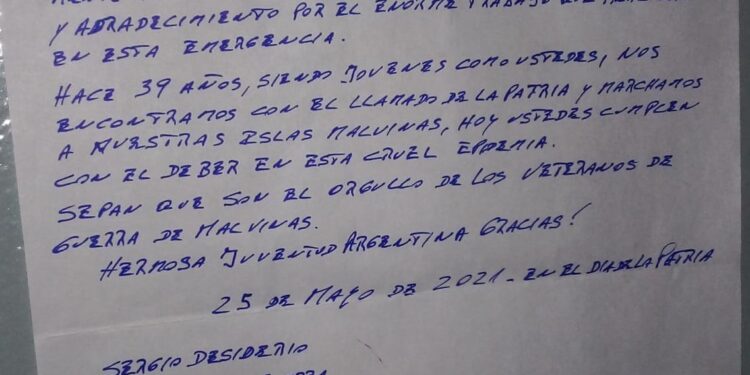 Y AGRADECIMIENTO POR EL ENORME TRABAJO QUE
EN ESTA EMERGENCIA.
HACE 39 AÑOS, SIENDO JOVENES COMO USTEDES, NOS
ENCONTRAMOS CON EL LLAMADO DE LA PATRIA Y MARCHAMOS
A NUESTRAS ISLAS MALVINAS, HOY USTEDES CUMPLEN
CON EL DEBER EN ESTA CRUEL EPDEMIA.
SEPAN QUE SON EL ORGULLO DE LOS VETERANOS DE
GUERRA DE MALVINAS.
HERMOSA JUVENTUD ARGENTINA GRACIAS!
25 DE MAYO DE 2021 - EN EL DIA DE LA PATRIA
SERGIO DESIDERIO